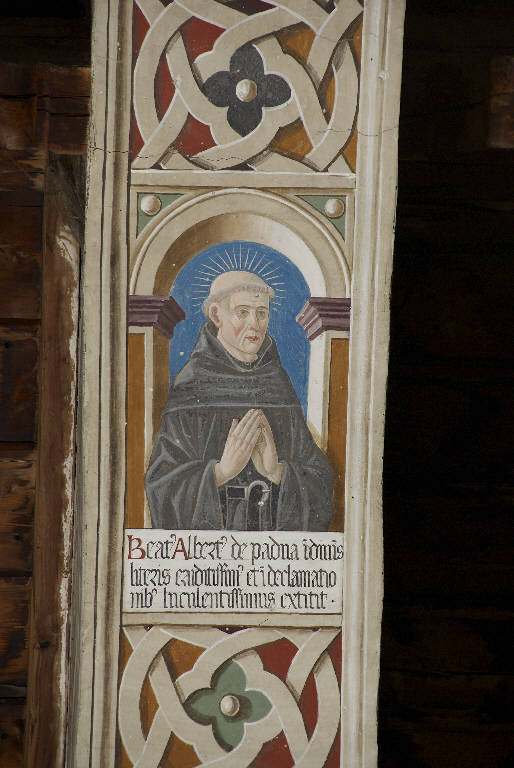 Beatꝰ Albertꝰ de padua ĩ diuĩs
literis eruditissimꝰ et ĩ declamatio
nibꝰ luculentissimus extitit ·